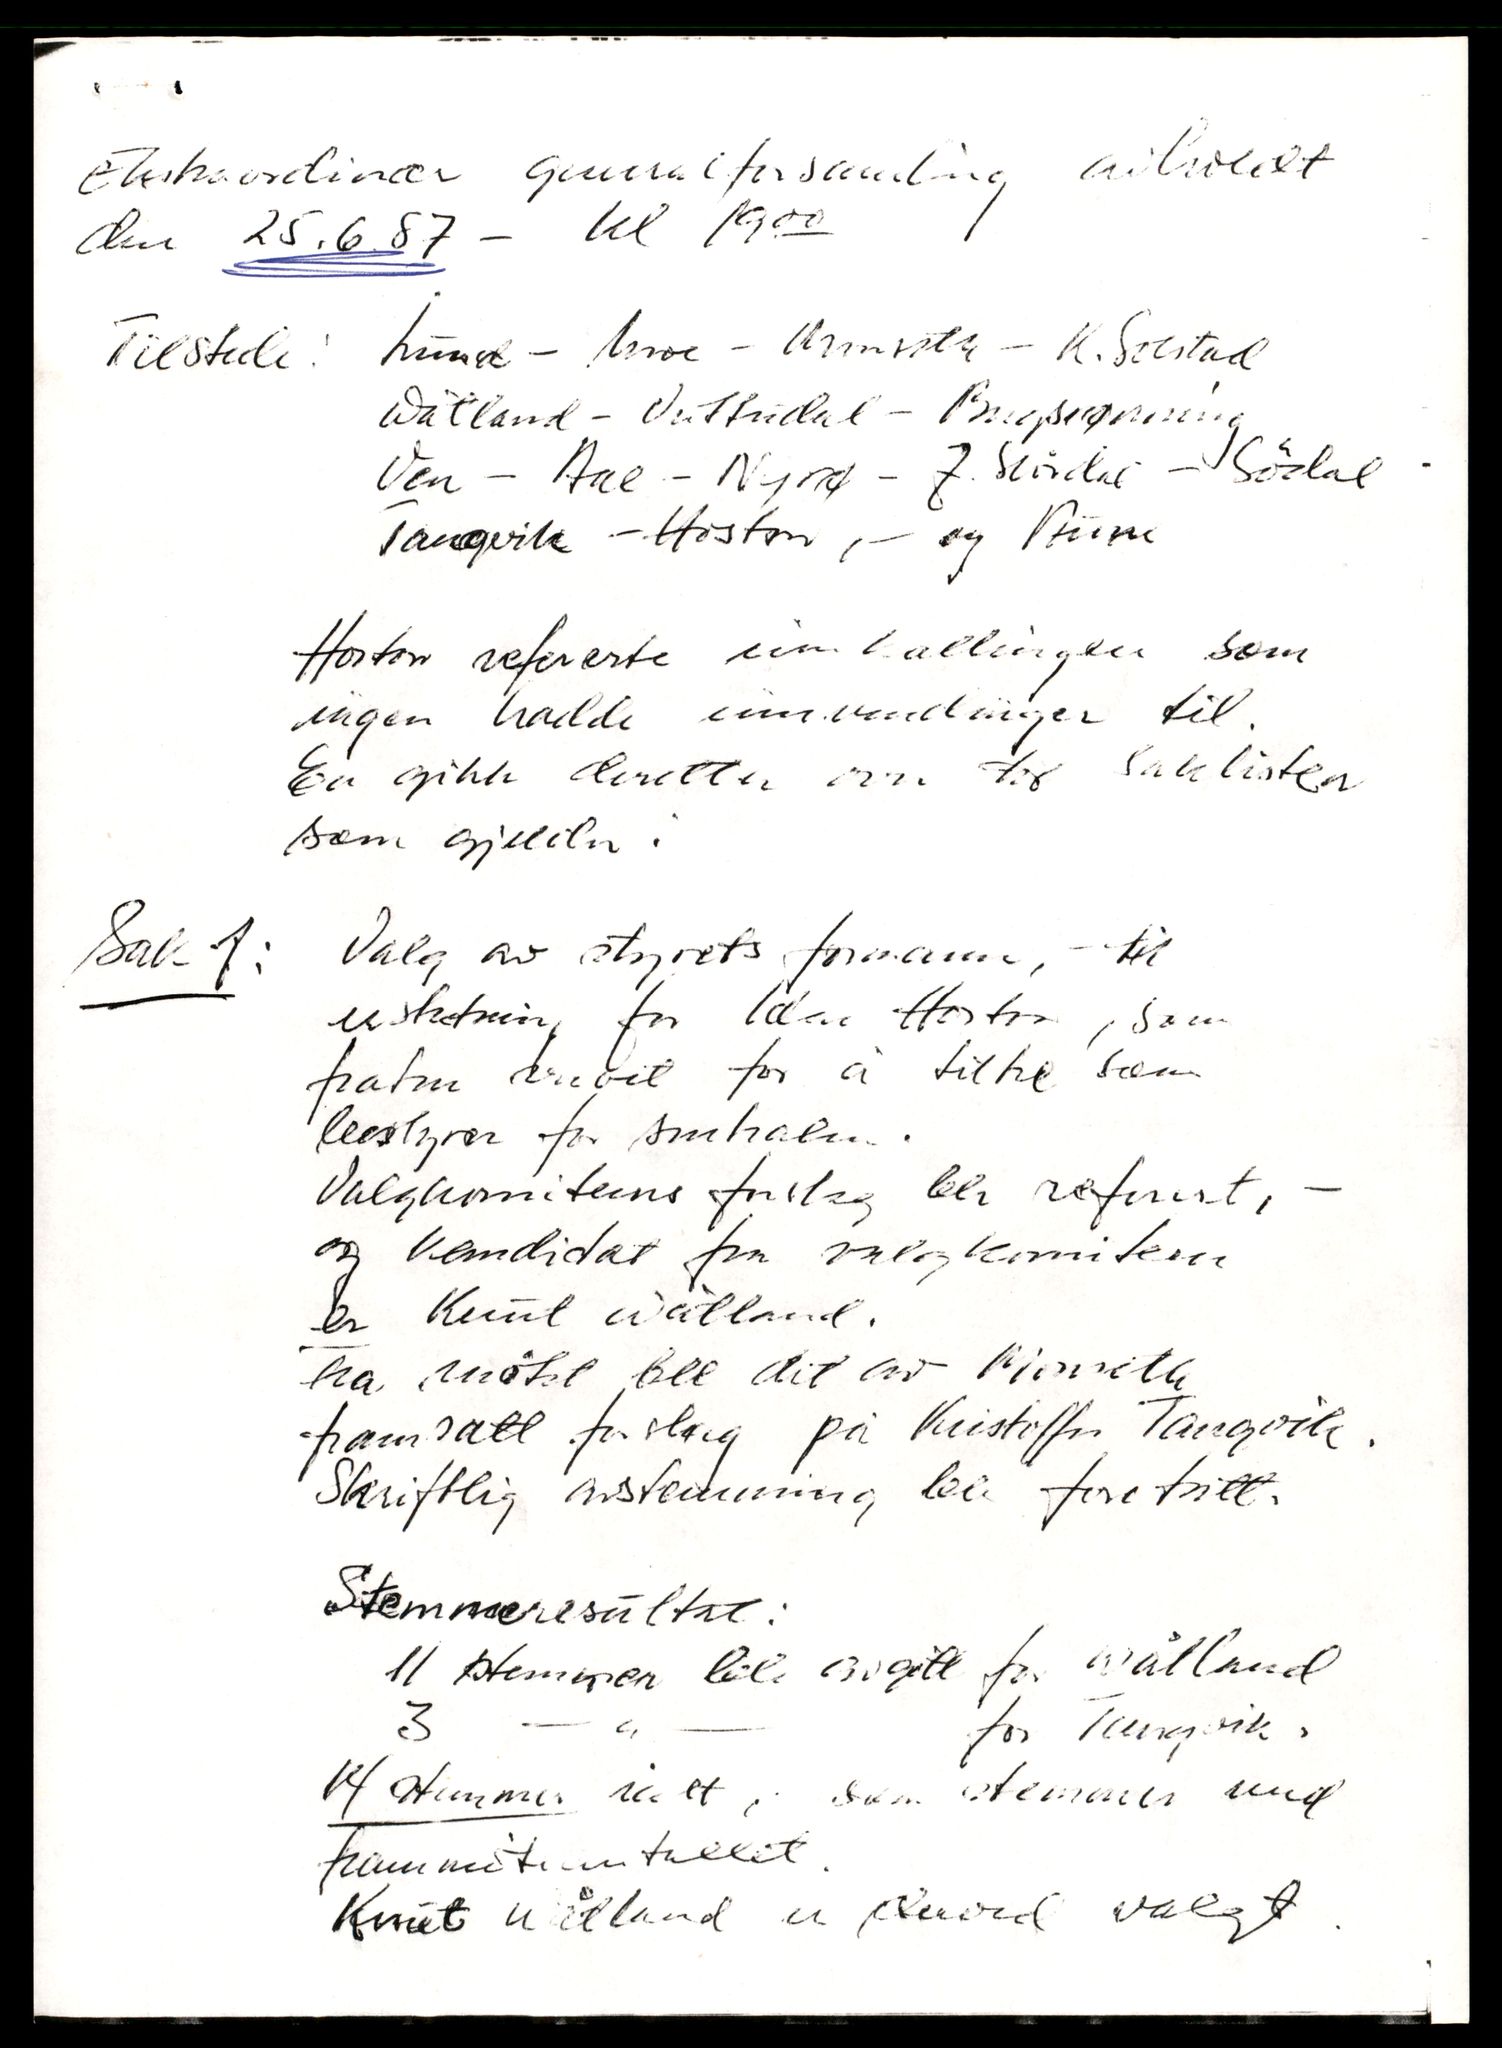 Ekstraordinær generalforsamling avholdt
den 25.6.87 - kl 19 00
Tilstede: Lund - Moe - - K. Solstad
Wåtland - Vuttudal -
Ven - Aae - - J. Sördal - Södal
Tangvik - Hoston, - og
Hoston refererte innkallingen som
ingen hadde innvendinger til.
En gikk deretter over til saklisten
som gjelder:
Sak 1: Valg av styrets formann, - til
erstatning for Hoston, som
fratrer for å tiltre som
bestyrer for sentralen.
Valgkomiteens forslag ble referert, -
og kandidat fra valgkomiteen
er Knut Wåtland.
Fra mötet ble det av
framsatt forslag på Kristoffer Tangvik.
Skriftlig avstemming ble foretatt.
Stemmeresultat:
11 stemmer ble avgitt for Wåtland
3 — " — for Tangvik.
14 stemmer ialt, som stemmer med
frammöteantallet.
Knut Wåtland er dermed valgt.